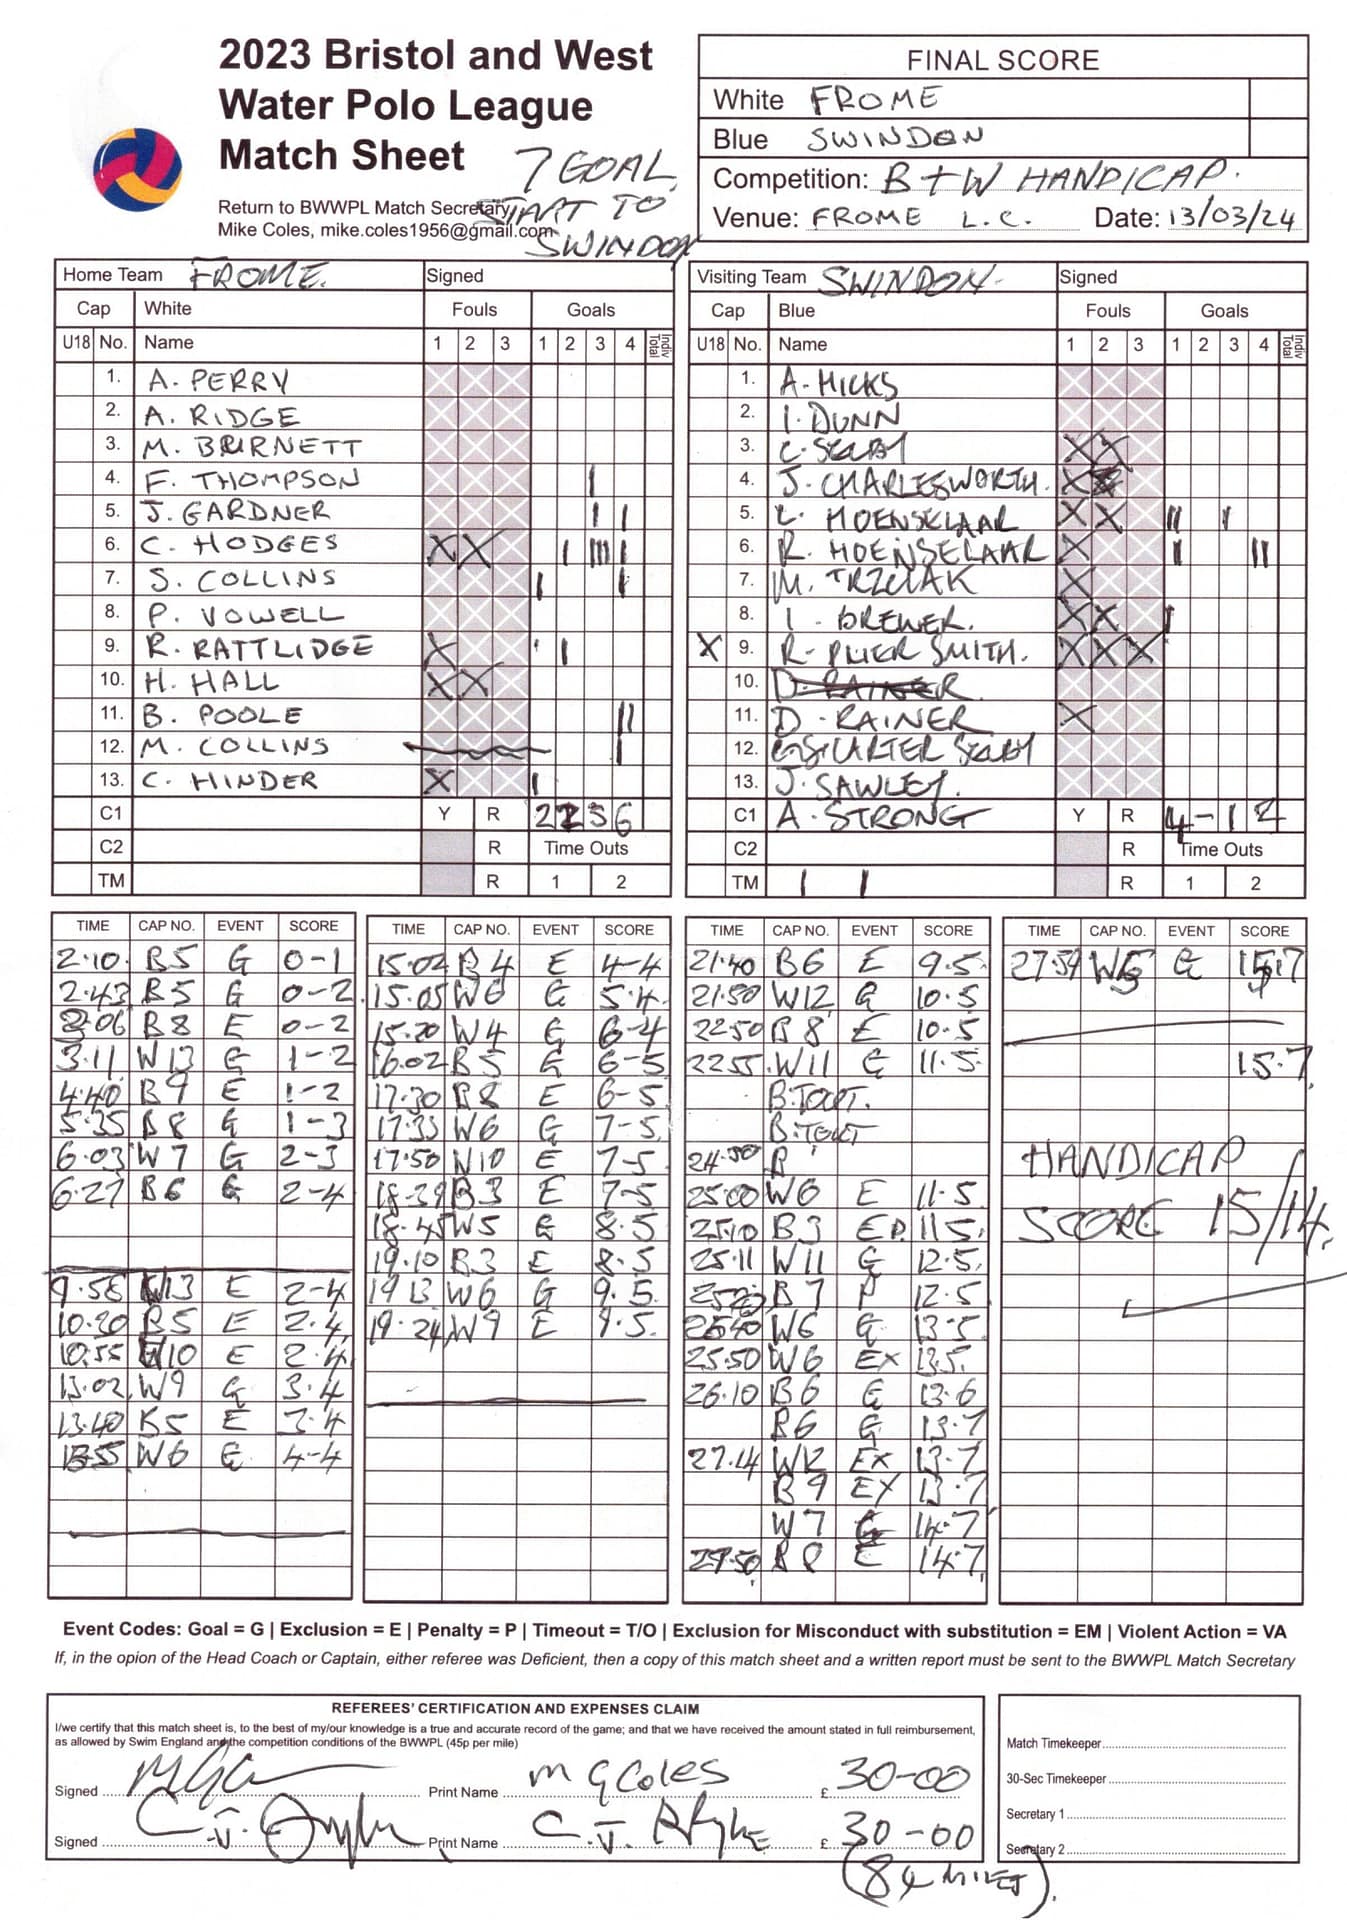 2023 Bristol and West
Water Polo League
Match Sheet
7 GOAL
START TO
SWINDON
Return to BWWPL Match Secretary
Mike Coles, mike.coles1956@gmail.com
FINAL SCORE
White FROME
Blue SWINDON
Competition: B+W HANDICAP.
Venue: FROME L.C. Date: 13/03/24
Home Team FROME. Signed
Cap White Fouls Goals
U18 No. Name 1 2 3 1 2 3 4 Indiv Total
1. A. PERRY
2. A. RIDGE
3. M. BURNETT
4. F. THOMPSON
5. J. GARDNER
6. C. HODGES X X
7. S. COLLINS
8. P. VOWELL
9. R. RATTLIDGE X
10. H. HALL X X
11. B. POOLE
12. M. COLLINS
13. C. HINDER X
C1 Y R 2 2 5 6
C2 R Time Outs
TM R 1 2
Visiting Team SWINDON. Signed
Cap Blue Fouls Goals
U18 No. Name 1 2 3 1 2 3 4 Indiv Total
1. A. HICKS
2. I. DUNN
3. C. SELBY X X
4. J. CHARLESWORTH. X
5. L. HOENSELAAR X X
6. R. HOENSELAAR X
7. M. X
8. I. BREWER. X X
X 9. R. SMITH. X X X
10. D. RAINER
11. D. RAINER X
12.
13. J. SAWLEY.
C1 A. STRONG Y R 4 - 1 2
C2 R Time Outs
TM R 1 2
TIME CAP NO. EVENT SCORE
2.10. B5 G 0-1
2.43 B5 G 0-2
3.06 B8 E 0-2
3.11 W13 G 1-2
4.40 B9 E 1-2
5.35 B8 G 1-3
6.03 W7 G 2-3
6.27 B6 G 2-4
9.58 W13 E 2-4
10.20 B5 E 2.4
10.55 W10 E 2.4
13.02 W9 G 3.4
13.40 B5 E 3.4
13.55 W6 G 4-4
TIME CAP NO. EVENT SCORE
15.02 B4 E 4-4
15.05 W6 G 5.4
15.20 W4 G 6-4
16.02 B5 G 6-5
17.30 B8 E 6-5
17.33 W6 G 7-5
17.50 W10 E 7-5
18.39 B3 E 7-5
18.45 W5 G 8.5
19.10 B3 E 8.5
19 13 W6 G 9.5
19.24 W9 E 9.5
TIME CAP NO. EVENT SCORE
21.40 B6 E 9.5
21.50 W12 G 10.5
22.50 B8 E 10.5
22.55 W11 G 11.5
B.TOUT.
B.TOUT
24.30 B
25.00 W6 E 11.5
25.10 B3 EP. 11 5
25.11 W11 G 12.5
B7 P 12.5
25.40 W6 G 13.5
25.50 W6 EX 13.5
26.10 B6 G 13.6
B6 G 13.7
27.14 W12 EX 13.7
B9 EX 13.7
W7 G 14.7
27.50 B8 E 14.7
TIME CAP NO. EVENT SCORE
27.59 W5 G 15.7
15.7
HANDICAP
SCORE 15/14.
Event Codes: Goal = G | Exclusion = E | Penalty = P | Timeout = T/O | Exclusion for Misconduct with substitution = EM | Violent Action = VA
If, in the opion of the Head Coach or Captain, either referee was Deficient, then a copy of this match sheet and a written report must be sent to the BWWPL Match Secretary
REFEREES' CERTIFICATION AND EXPENSES CLAIM
I/we certify that this match sheet is, to the best of my/our knowledge is a true and accurate record of the game; and that we have received the amount stated in full reimbursement,
as allowed by Swim England and the competition conditions of the BWWPL (45p per mile)
Signed Print Name M G Coles £ 30-00
Signed C. J. Print Name C. J. £ 30-00
(84 MILES).
Match Timekeeper
30-Sec Timekeeper
Secretary 1
Secretary 2